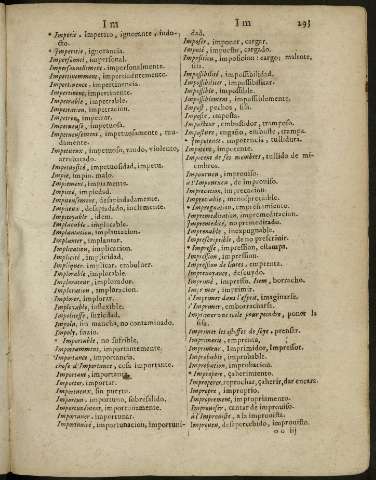 Im Im 293
* Imperit, Imperito, ignorante, indo-
cto.
* Imperitie, ignorancia.
Impersonnel, impersonal.
Impersonnellement, impersonalmente.
Impertinemment, impertinentemente.
Impertinence, impertinencia.
Impertinent, impertinente.
Impetrable, impetrable.
Impetration, impetracion.
Impetrer, impetrar.
Impetueux, impetuoso.
Impetueusement, impetuosamente,
damente.
Impetueux, impetuoso, raudo, violento,
arrebatado.
Impetuosité, impetuosidad, impetu.
Impie, impio, malo.
Impiement, impiamente.
Impieté, impiedad.
Impiteusement, despiadadamente.
Impiteux, despiadado, inclemente.
Impitoyable, idem.
Implacable, implacable.
Implantation, implantacion.
Implanter, implantar.
Implication, implicacion.
Implicité, implicidad.
Impliquer, implicar, embolver.
Implorable, implorable.
Implorateur, implorador.
Imploration, imploracion.
Implorer, implorar.
Imployable, inflexible.
Impolitesse, suziedad.
Impolu, sin mancha, no contaminado.
Impoly, suzio.
* Importable, no sufrible.
Importamment, importantemente.
* Importance, importancia.
chose d'Importance, cosa importante.
Important, importante.
Importer, importar.
Importueux, sin puerto.
Importun, importuno, sobresalido.
Importunément, importunamente.
Importuner, importunar.
Importunité, importunacion, importuni-
dad.
Imposer, imponer, cargar.
Imposé, impuesto, cargado.
Imposition, imposicion: cargo; maltote,
sisa.
Impossibilité, impossibilidad.
Impossibiliter, impossibilitar.
Impossible, impossible.
Impossiblement, impossiblemente.
Impost, pechos, sisa.
Imposte, imposta.
Imposteur, embustidor, tramposo.
Imposture, engaño, embuste, trampa.
* Impotence, impotencia, tullidura.
Impotent, impotente.
Impotent de ses membres, tullido de mi-
embros.
Impourveu, improviso.
à l'Impourveu, de improviso.
Imprecation, imprecacion.
Imprenable,
Impregnation, empreñamiento.
Impremeditation, impremeditacion.
* Impremedité, no premeditado.
Imprenable, inexpugnable.
Imprescriptible, de no prescrivir.
* Impresse, impression, estampa.
Impression, impression.
Impression de livres, emprenta.
Imprevoyance, descuydo.
Imprimé, impresso. Item, borracho.
Imprimer, imprimir.
s'Imprimer dans l'esprit, imaginarse.
s'Imprimer, emborracharse.
Imprimer une toile pour peindre, poner la
sisa.
Imprimer les estoffes de soye, prensar.
Imprimerie, emprenta.
Imprimeur, Imprimidor, Impressor.
Improbable, improbable.
Improbation, improbacion.
* Impropere, çaherimiento.
Improperer, reprochar, çaherir, dar encara.
Impropre, improprio.
Improprement, impropriamente.
Improviser, cantar de improviso.
à l'Improviste, a la improvista.
Improveu, desapercebido, improviso.
oo iij